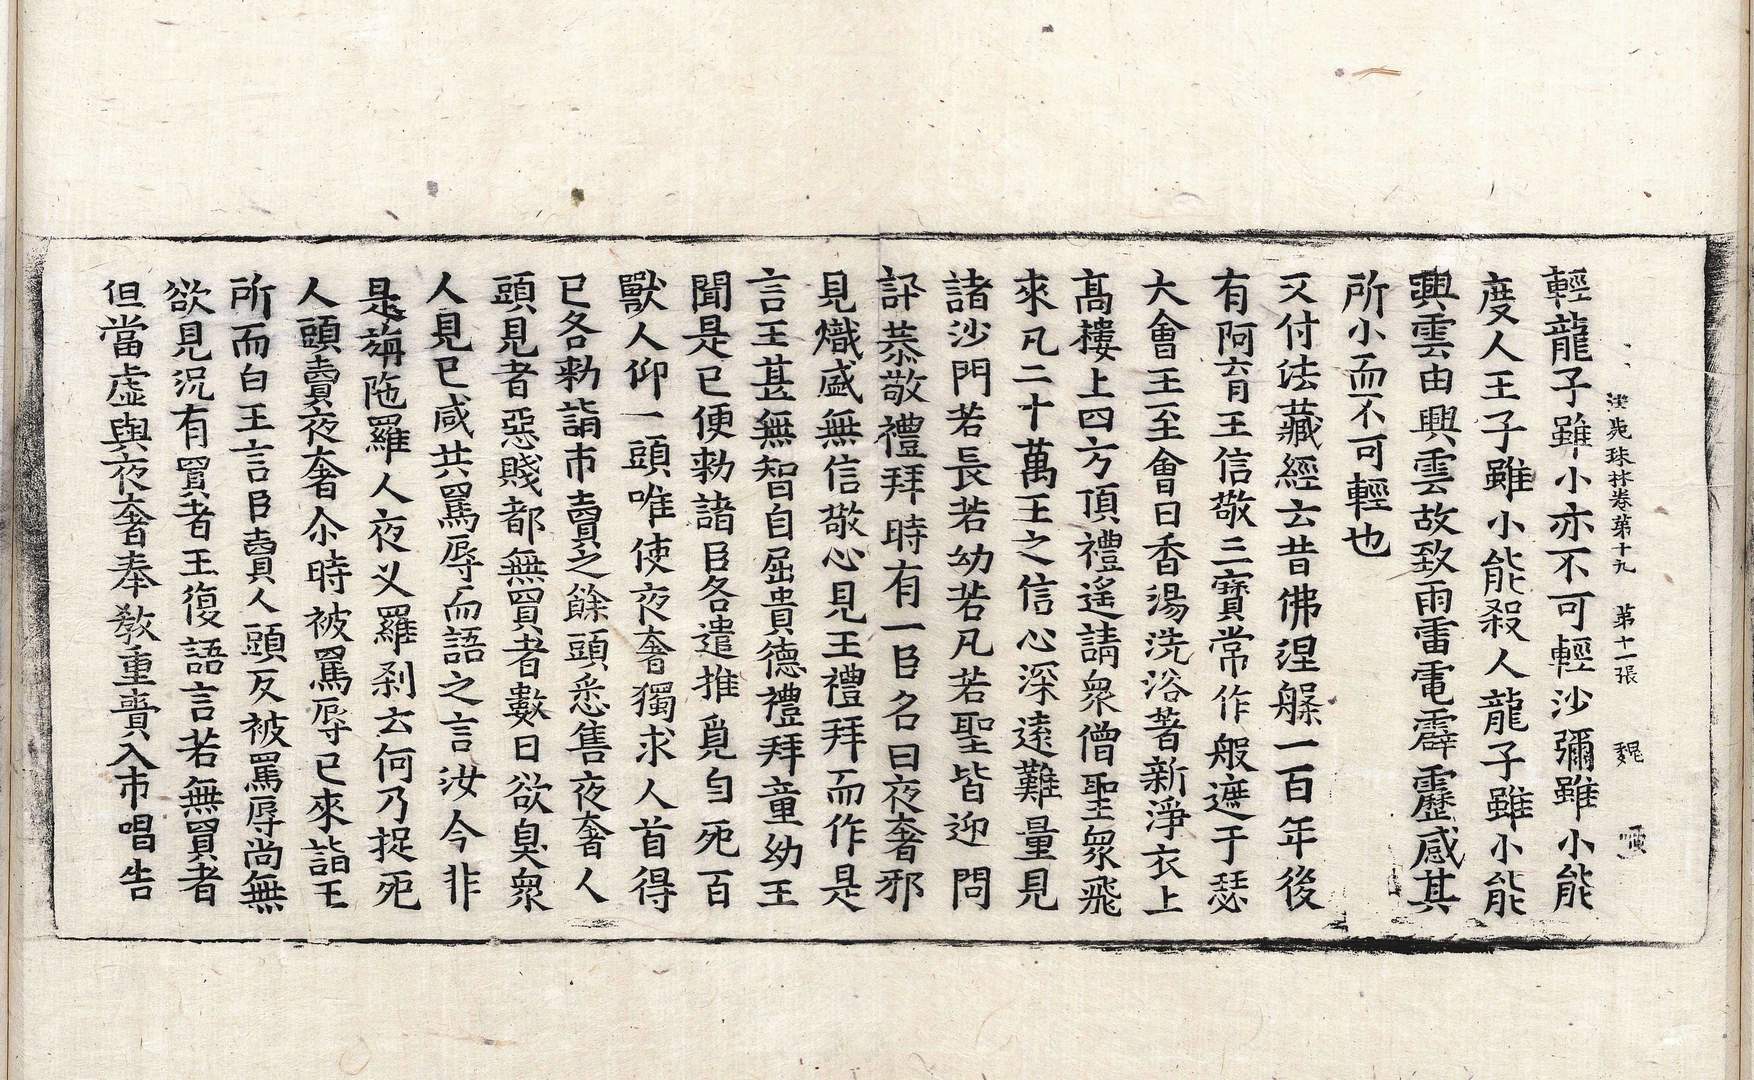 法苑珠林卷第十九 第十一張 魏
輕龍子雖小亦不可輕沙彌雖小能
度人王子雖小能殺人龍子雖小能
興雲由興雲故致雨雷電霹靂感其
所小而不可輕也
又付法藏經云昔佛涅槃一百年後
有阿育王信敬三寶常作般遮于瑟
大會王至會日香湯洗浴著新淨衣上
高樓上四方頂禮遙請衆僧聖衆飛
來凡二十萬王之信心深遠難量見
諸沙門若長若幼若凡若聖皆迎問
訊恭敬禮拜時有一臣名曰夜奢邪
見熾盛無信敬心見王禮拜而作是
言王甚無智自屈貴德禮拜童幼王
聞是已便勑諸臣各遣推覓自死百
獸人仰一頭唯使夜奢獨求人首得
已各勑詣市賣之餘頭悉售夜奢人
頭見者惡賤都無買者數日欲臭衆
人見已咸共罵辱而語之言汝今非
是旃陁羅人夜叉羅剎云何乃捉死
人頭賣夜奢尒時被罵辱已來詣王
所而白王言臣賣人頭反被罵辱尚無
欲見況有買者王復語言若無買者
但當虛與夜奢奉教重賷入市唱告